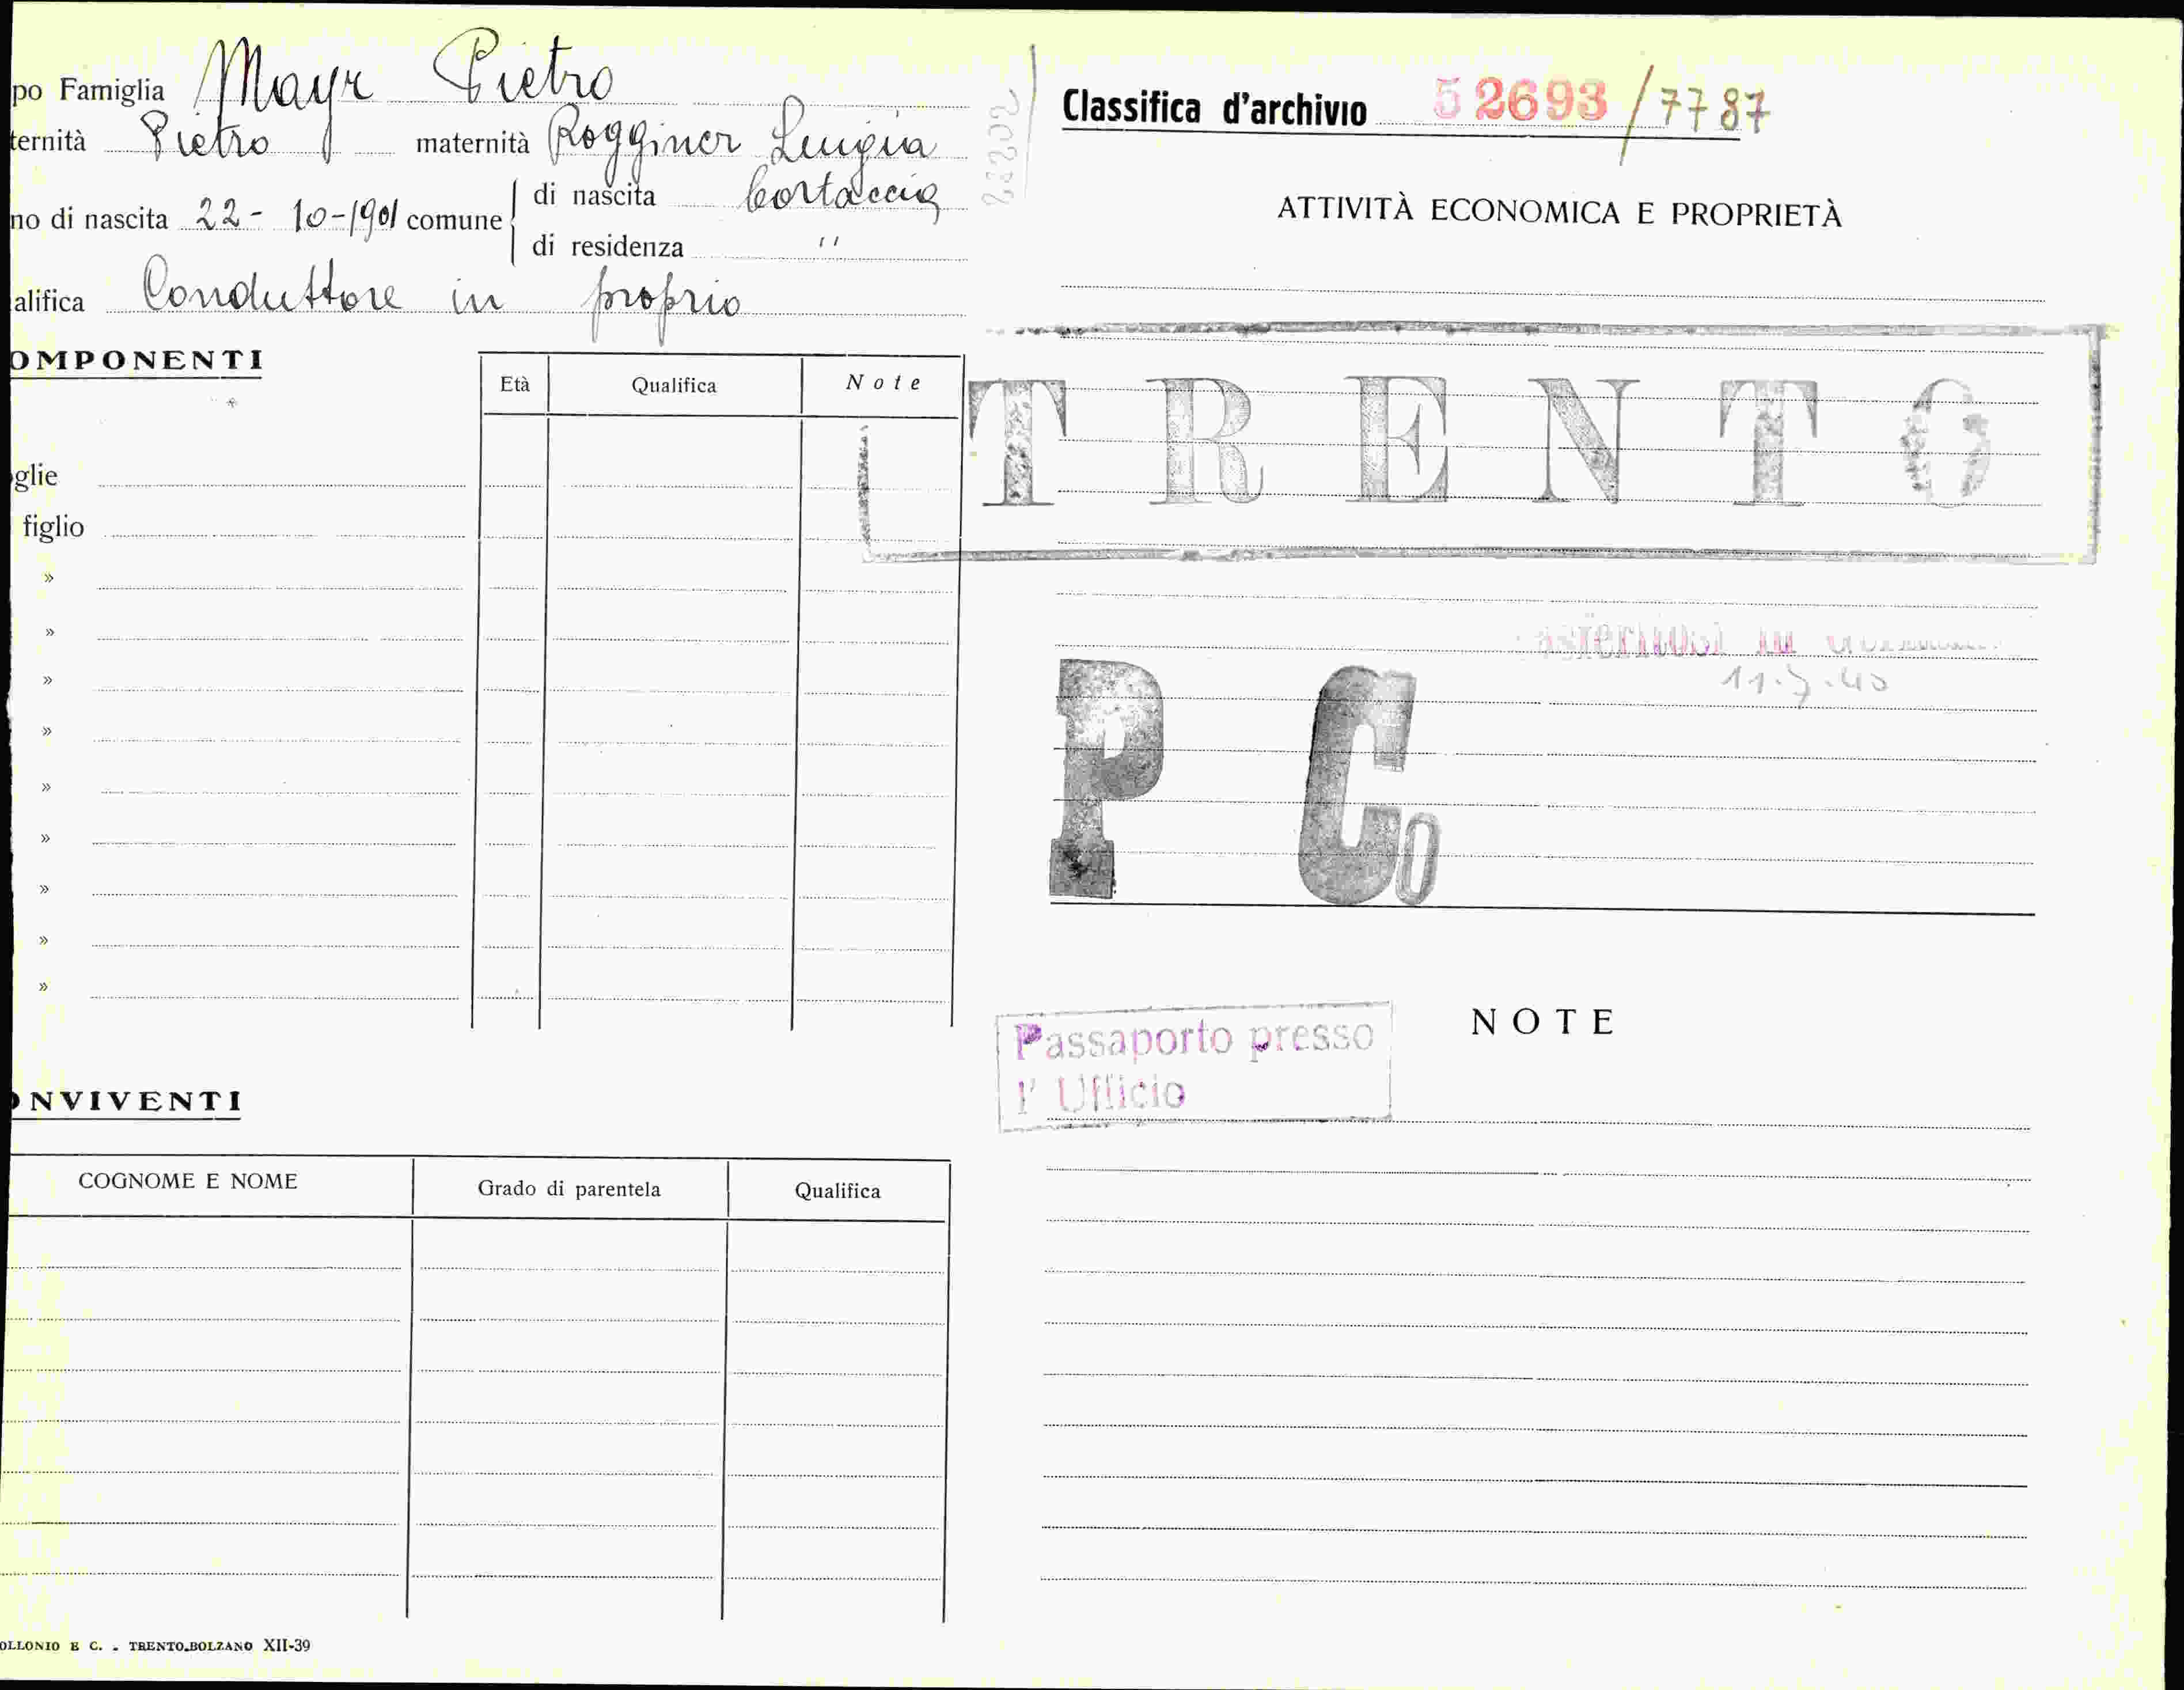 po Famiglia Mayr Pietro
ternità Pietro maternità Rogginer Luigia
no di nascita 22-10-1901 comune di nascita Cortaccia
di residenza "
alifica Conduttore in proprio
OMPONENTI
Età Qualifica Note
glie
figlio
»
»
»
»
»
»
»
»
»
ONVIVENTI
COGNOME E NOME Grado di parentela Qualifica
OLLONIO E C. - TRENTO-BOLZANO XII-39
Classifica d'archivio 52693/7787
ATTIVITÀ ECONOMICA E PROPRIETÀ
TRENTO
in
P Co
NOTE
Passaporto presso
l' Ufficio